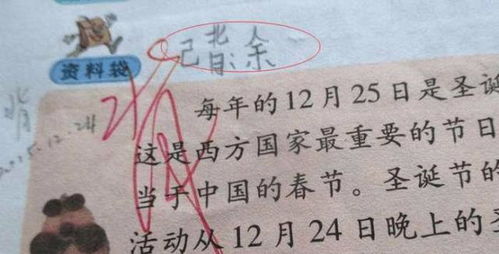 资料袋
2015.12.24
每年的12月25日是圣诞
这是西方国家最重要的节日
当于中国的春节。圣诞节的
活动从12月24日晚上的